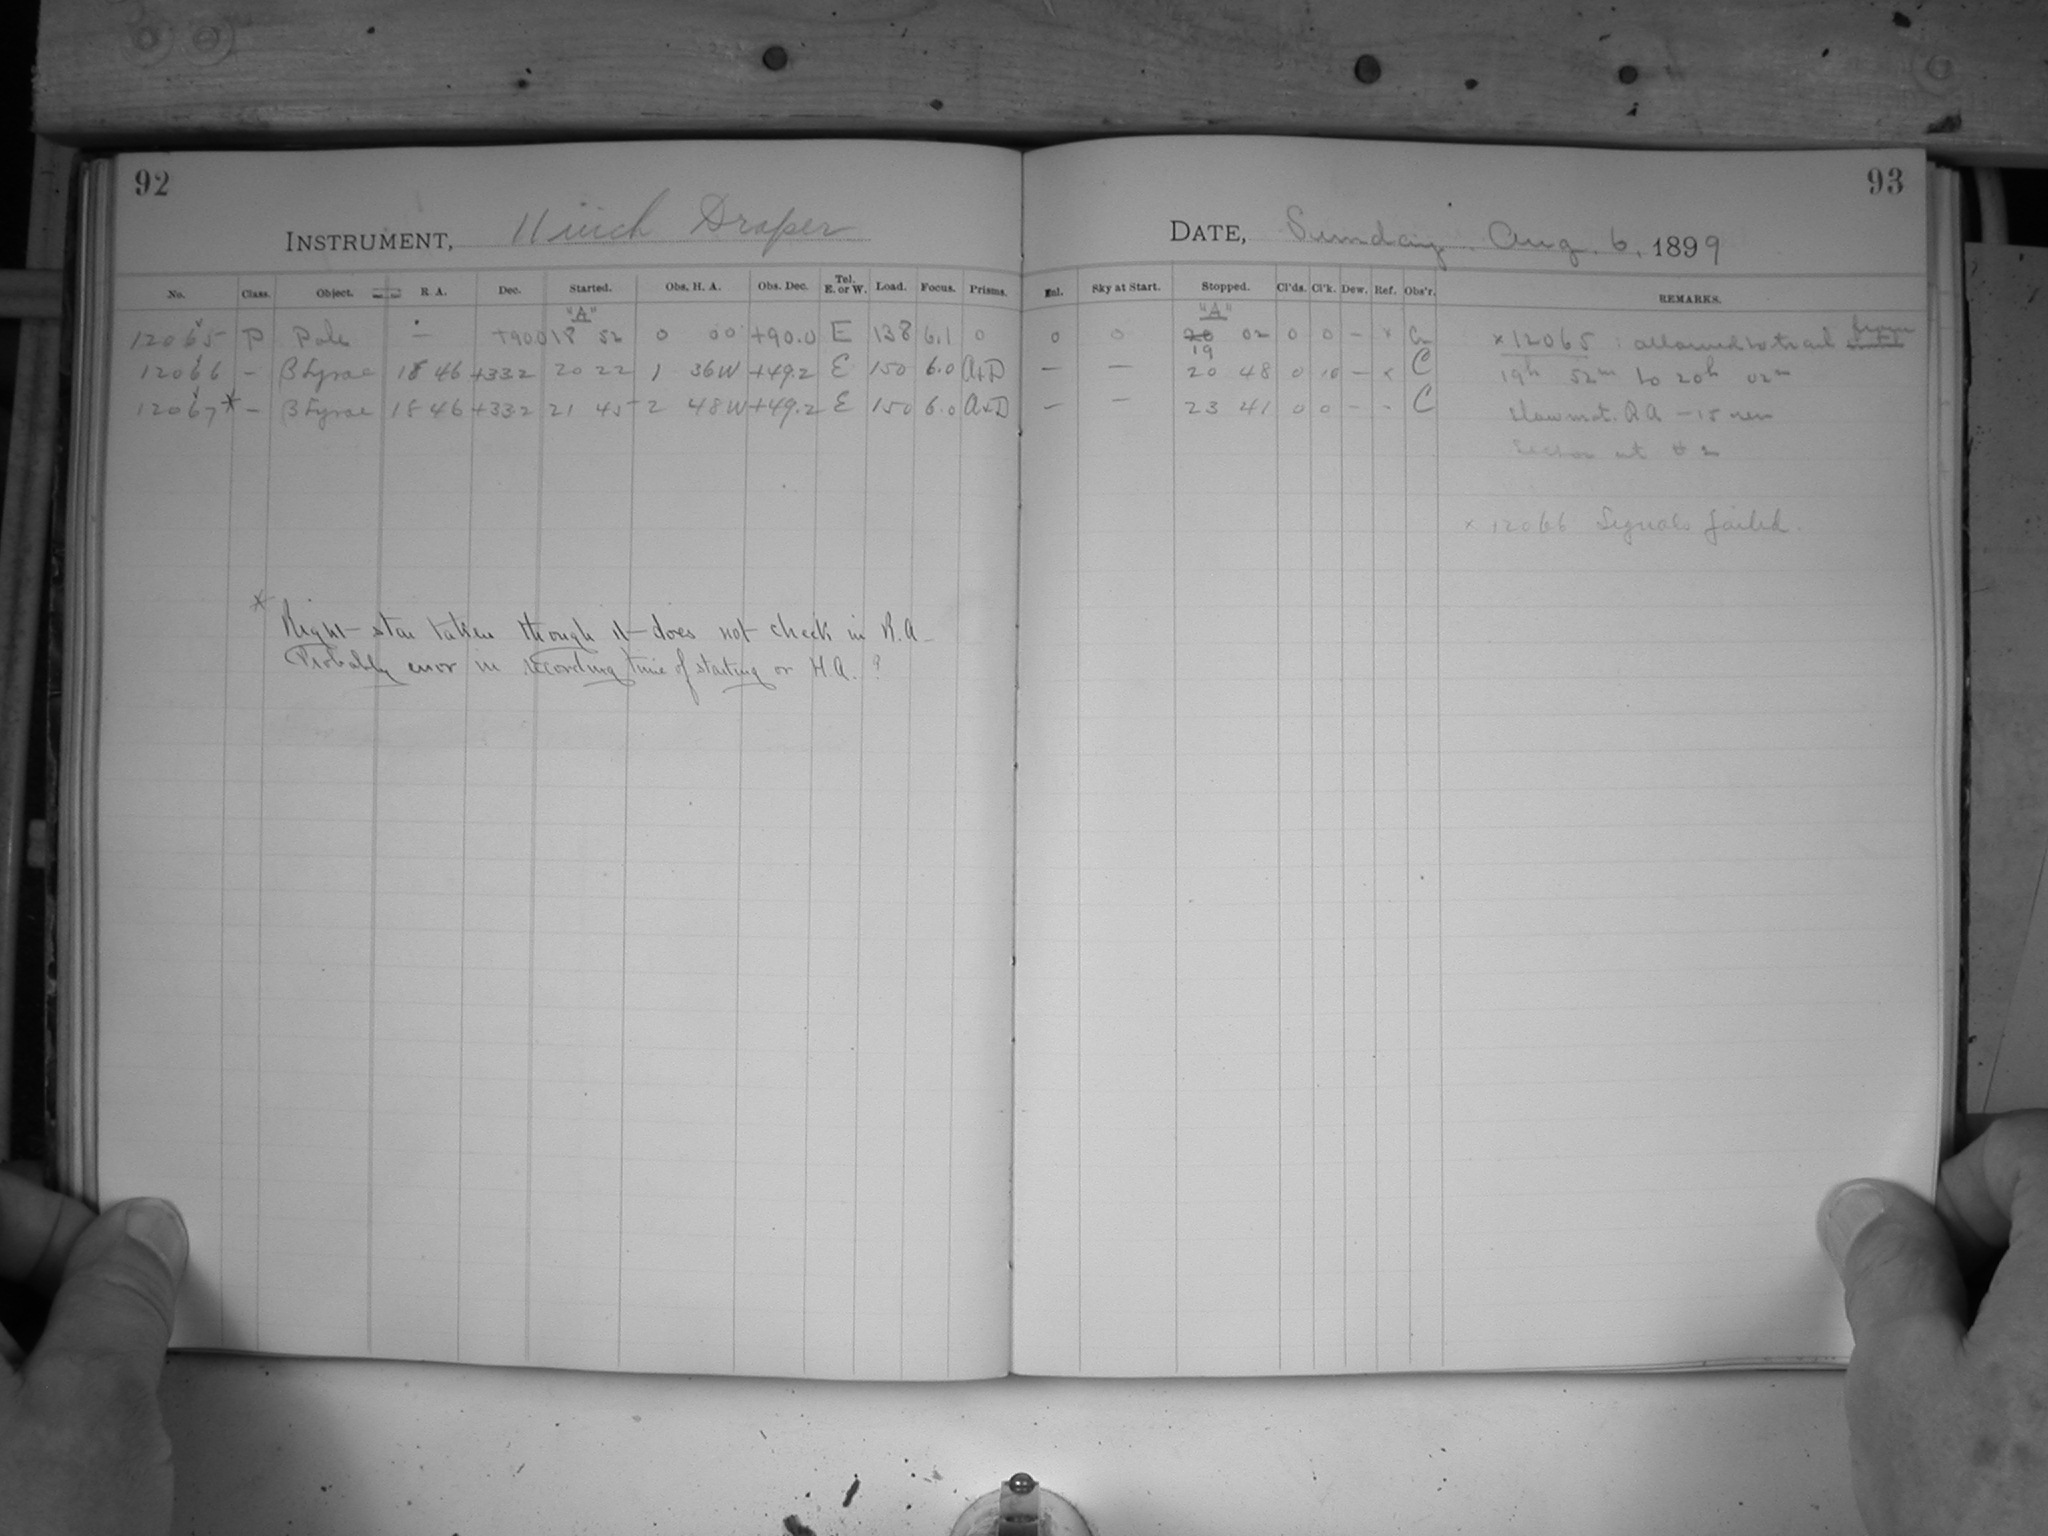 92
INSTRUMENT, 11 inch Draper
No. Class. Object. R. A. Dec. Started. Obs. H. A. Obs. Dec. Tel. E. or W. Load. Focus. Prisms.
"A"
12065 P Pole — +90.0 18 52 0 00 +90.0 E 138 6.1 0
12066 - β Lyrae 18 46 +33.2 20 22 1 36W +49.2 E 150 6.0 A+D
12067* - β Lyrae 18 46 +33.2 21 45 2 48W +49.2 E 150 6.0 A+D
* Right star taken though it does not check in R.A.
Probably error in recording time of starting or H.A. ?
93
DATE, Sunday. Aug. 6, 1899
Enl. Sky at Start. Stopped. Cl'ds. Cl'k. Dew. Ref. Obs'r. REMARKS.
"A"
0 0 20 02 0 0 — x
19
— — 20 48 0 10 — x C
— — 23 41 0 0 - - C
x 12065 : allowed to trail from
19h 52m to 20h 02m
slow mot. R A — 15
at # 2
x 12066 Signals failed.